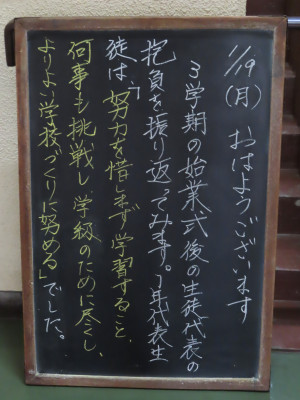 1/19(月) おはようございます
3学期の始業式後の生徒代表の
抱負を振り返ってみます。1年代表生
徒は、「努力を惜しまず学習すること、
何事も挑戦し、学級のために尽くし、
よりよい学校づくりに努める」でした。